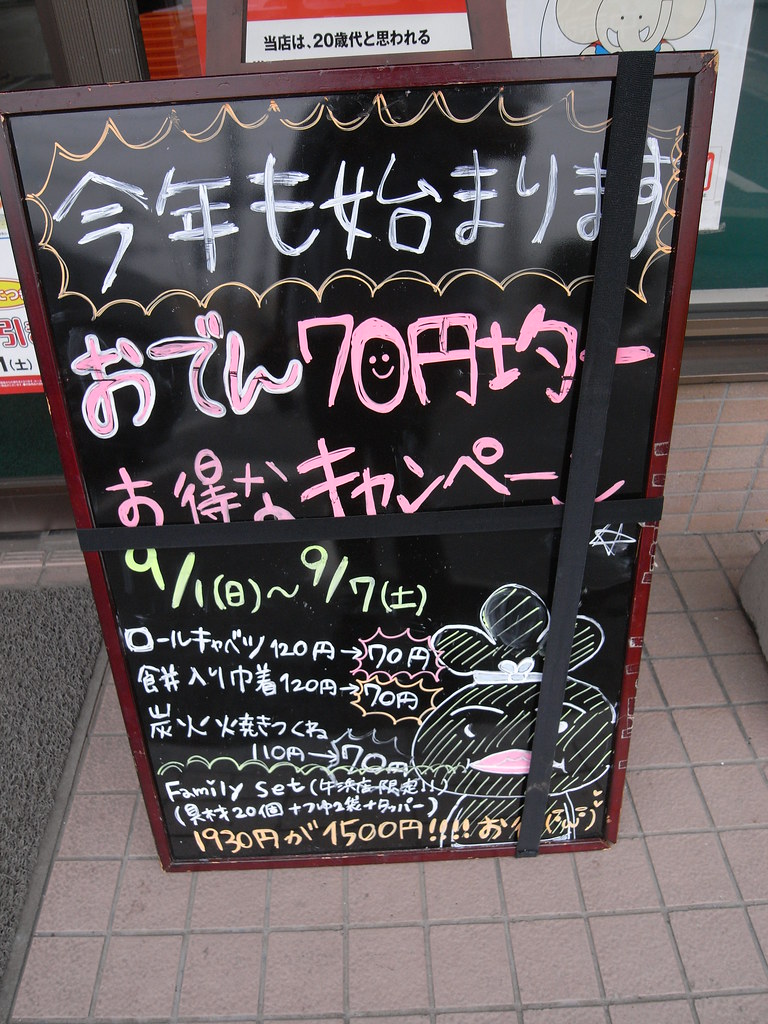 当店は、20歳代と思われる
今年も始まります
おでん70円均一
お得なキャンペーン
9/1(日)～9/7(土)
ロールキャベツ120円→70円
餅入り巾着120円→70円
炭火焼きつくね
110円→70円
Family Set(牛浜店限定!!)
(具材20個+つゆ2袋+タッパー)
1930円が1500円!!!!お得